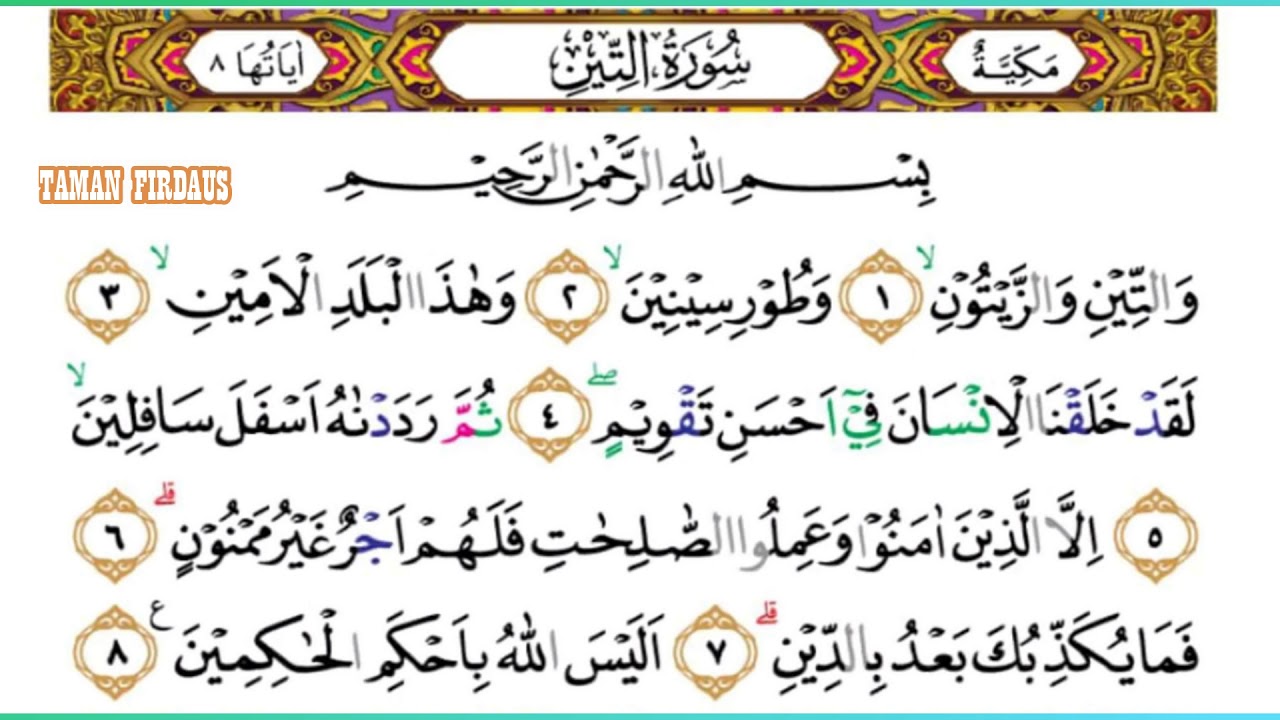 مَكِّيَّةٌ سُوْرَةُ التِّيْنِ اٰيَاتُهَا ٨
بِسْمِ اللّٰهِ الرَّحْمٰنِ الرَّحِيْمِ
TAMAN FIRDAUS
وَالتِّيْنِ وَالزَّيْتُوْنِۙ ١ وَطُوْرِ سِيْنِيْنَۙ ٢ وَهٰذَا الْبَلَدِ الْاَمِيْنِۙ ٣
لَقَدْ خَلَقْنَا الْاِنْسَانَ فِيْٓ اَحْسَنِ تَقْوِيْمٍۖ ٤ ثُمَّ رَدَدْنٰهُ اَسْفَلَ سَافِلِيْنَۙ
٥ اِلَّا الَّذِيْنَ اٰمَنُوْا وَعَمِلُوا الصّٰلِحٰتِ فَلَهُمْ اَجْرٌ غَيْرُ مَمْنُوْنٍۗ ٦
فَمَا يُكَذِّبُكَ بَعْدُ بِالدِّيْنِۗ ٧ اَلَيْسَ اللّٰهُ بِاَحْكَمِ الْحٰكِمِيْنَ ع ٨